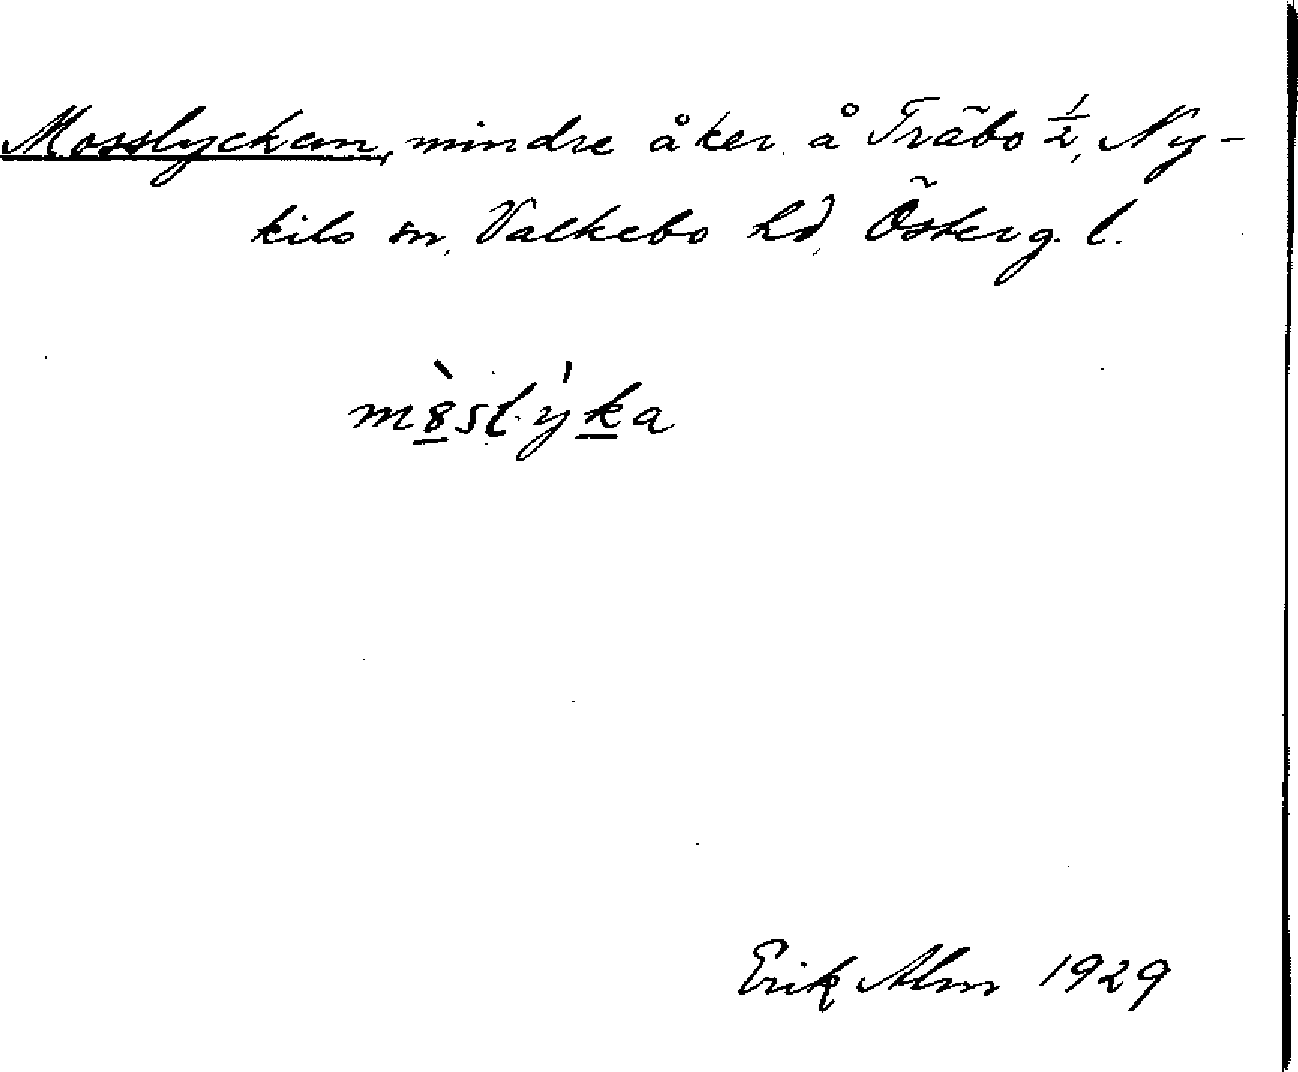 Mosslyckan, mindre åker å Träbo 1/2, Ny-
kils sn, Valkebo hd, Österg. l.
m8̲̀slýk̲a
Erik Alm 1929